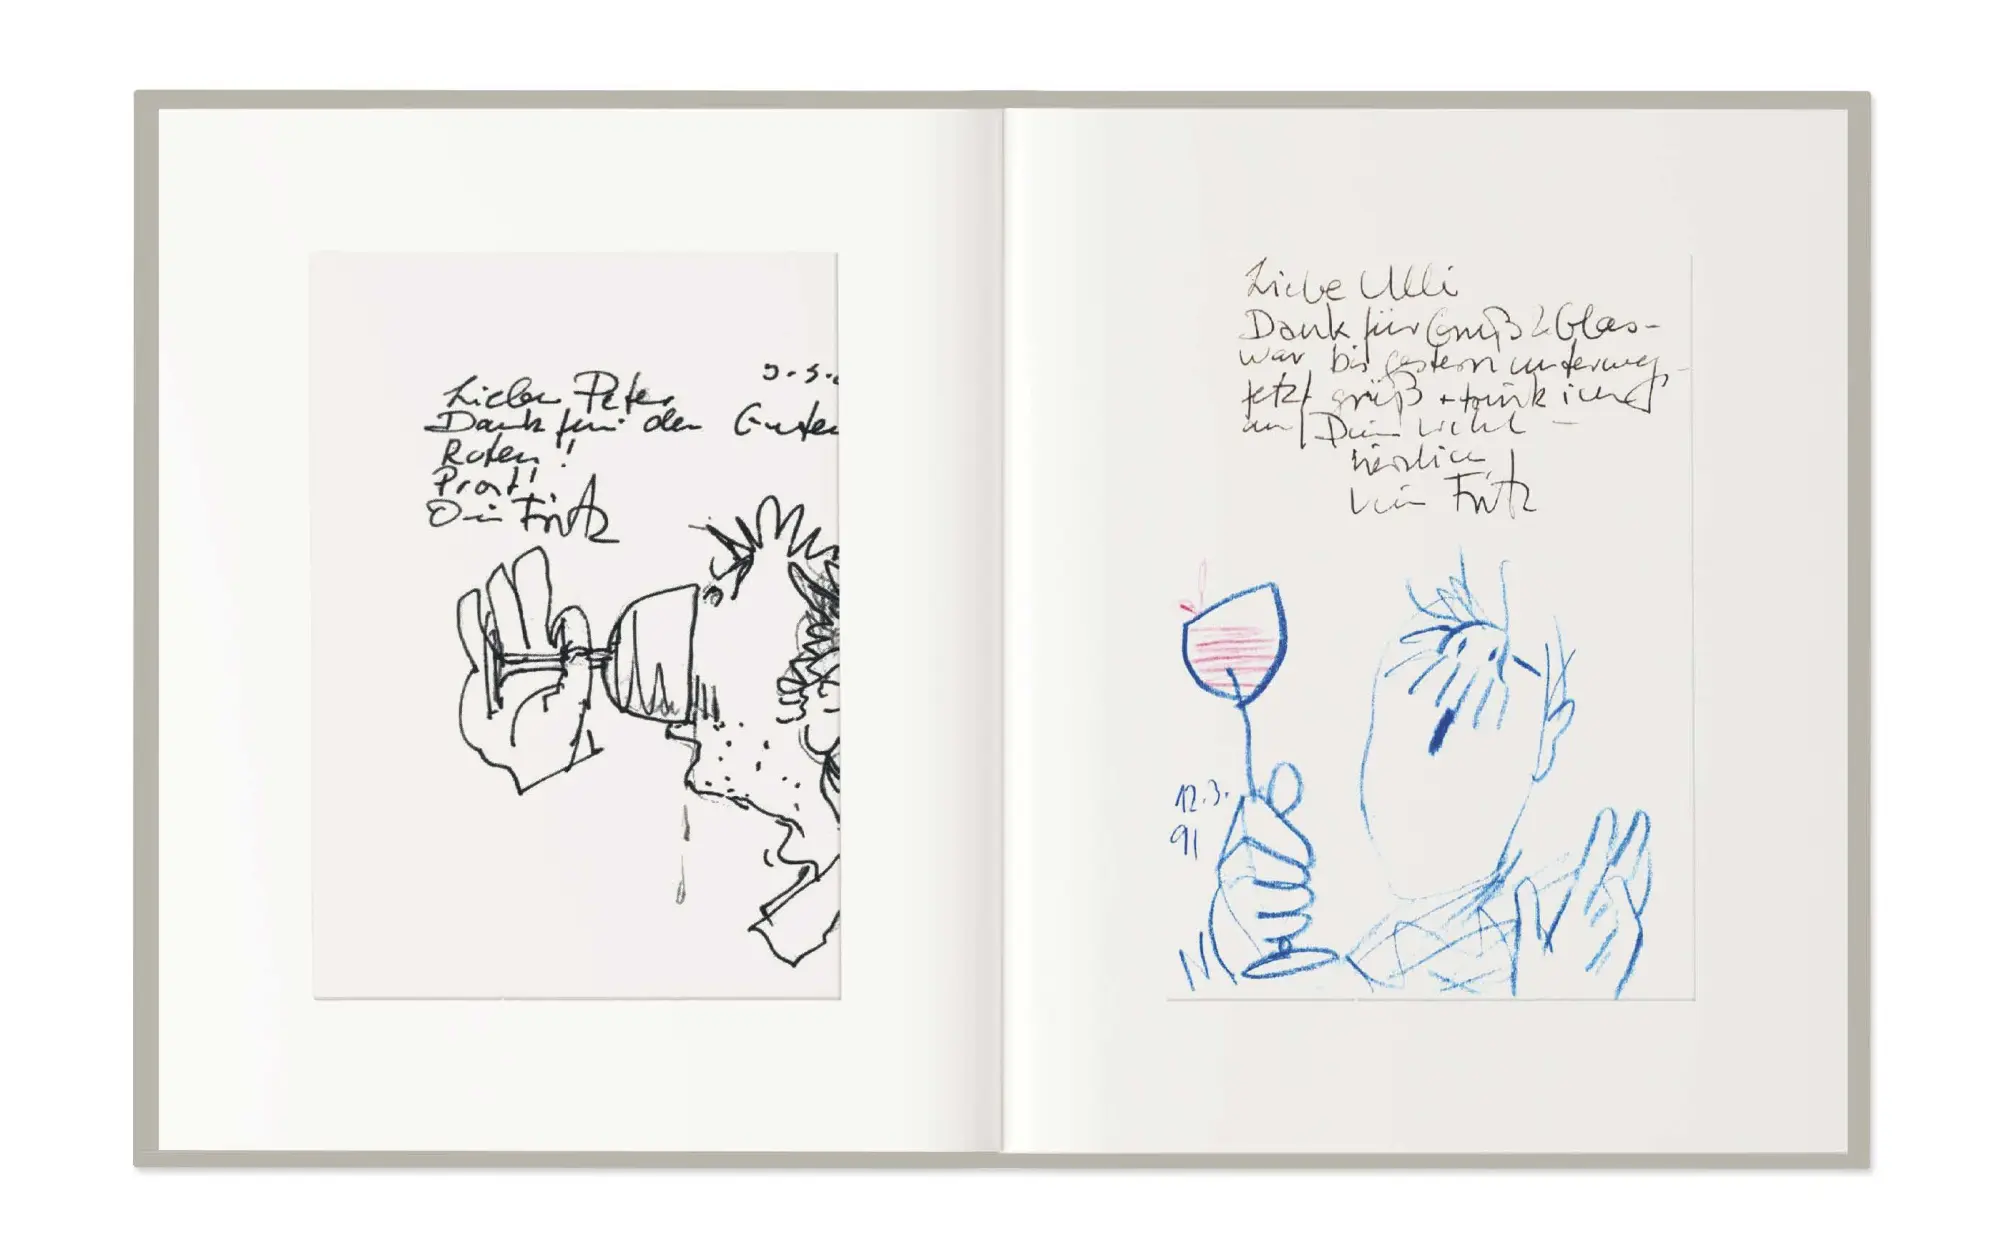 9.3.
Lieber Peter
Dank für den Guten
Roten!!
Prost!
Dein Fritz
Liebe Ulli
Dank für Gruß & Glas-
war bis gestern unterwegs-
jetzt grüß + trink ich
auf Dein Wohl -
herzlich
Dein Fritz
12.3.
91